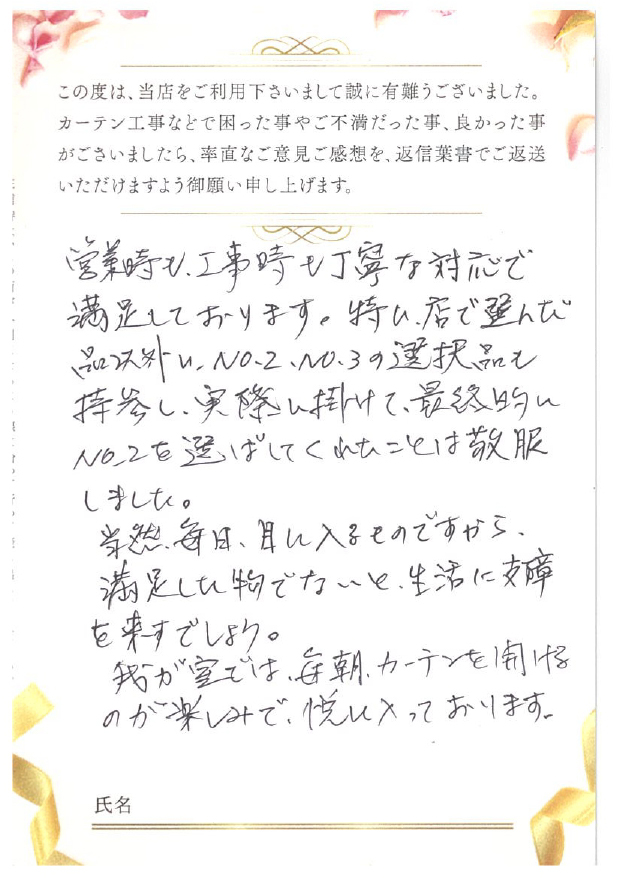 この度は、当店をご利用下さいまして誠に有難うございました。
カーテン工事などで困った事やご不満だった事、良かった事
がございましたら、率直なご意見ご感想を、返信葉書でご返送
いただけますよう御願い申し上げます。
営業時も、工事時も丁寧な対応で
満足しております。特に、店で選んだ
品以外に、NO.2、NO.3の選択品も
持参し、実際に掛けて、最終的に
NO.2を選ばしてくれたことは敬服
しました。
当然、毎日、目に入るものですから、
満足した物でないと、生活に支障
を来すでしょう。
我が室では、毎朝、カーテンを開ける
のが楽しみで、悦に入っております。
氏名